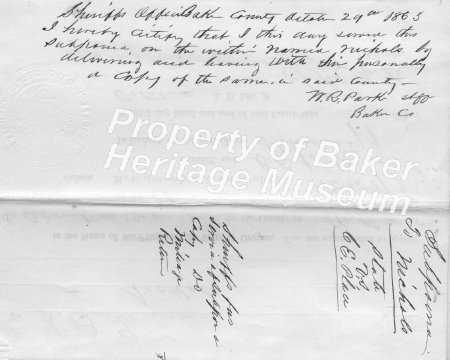 Sheriffs Office Baker County October 29th 1863
I hereby certify that I this day served this
Subpoena, on the within named Nichols by
delivering and leaving with him personally
a Copy of the same, in said County
W.R. Park Shff
Baker Co
Property of Baker
Heritage Museum
Subpoena
To Nichols
State
vs
C E. Place
Sheriffs fees
Service of Subpoena
Copy Do
Mileage
Return